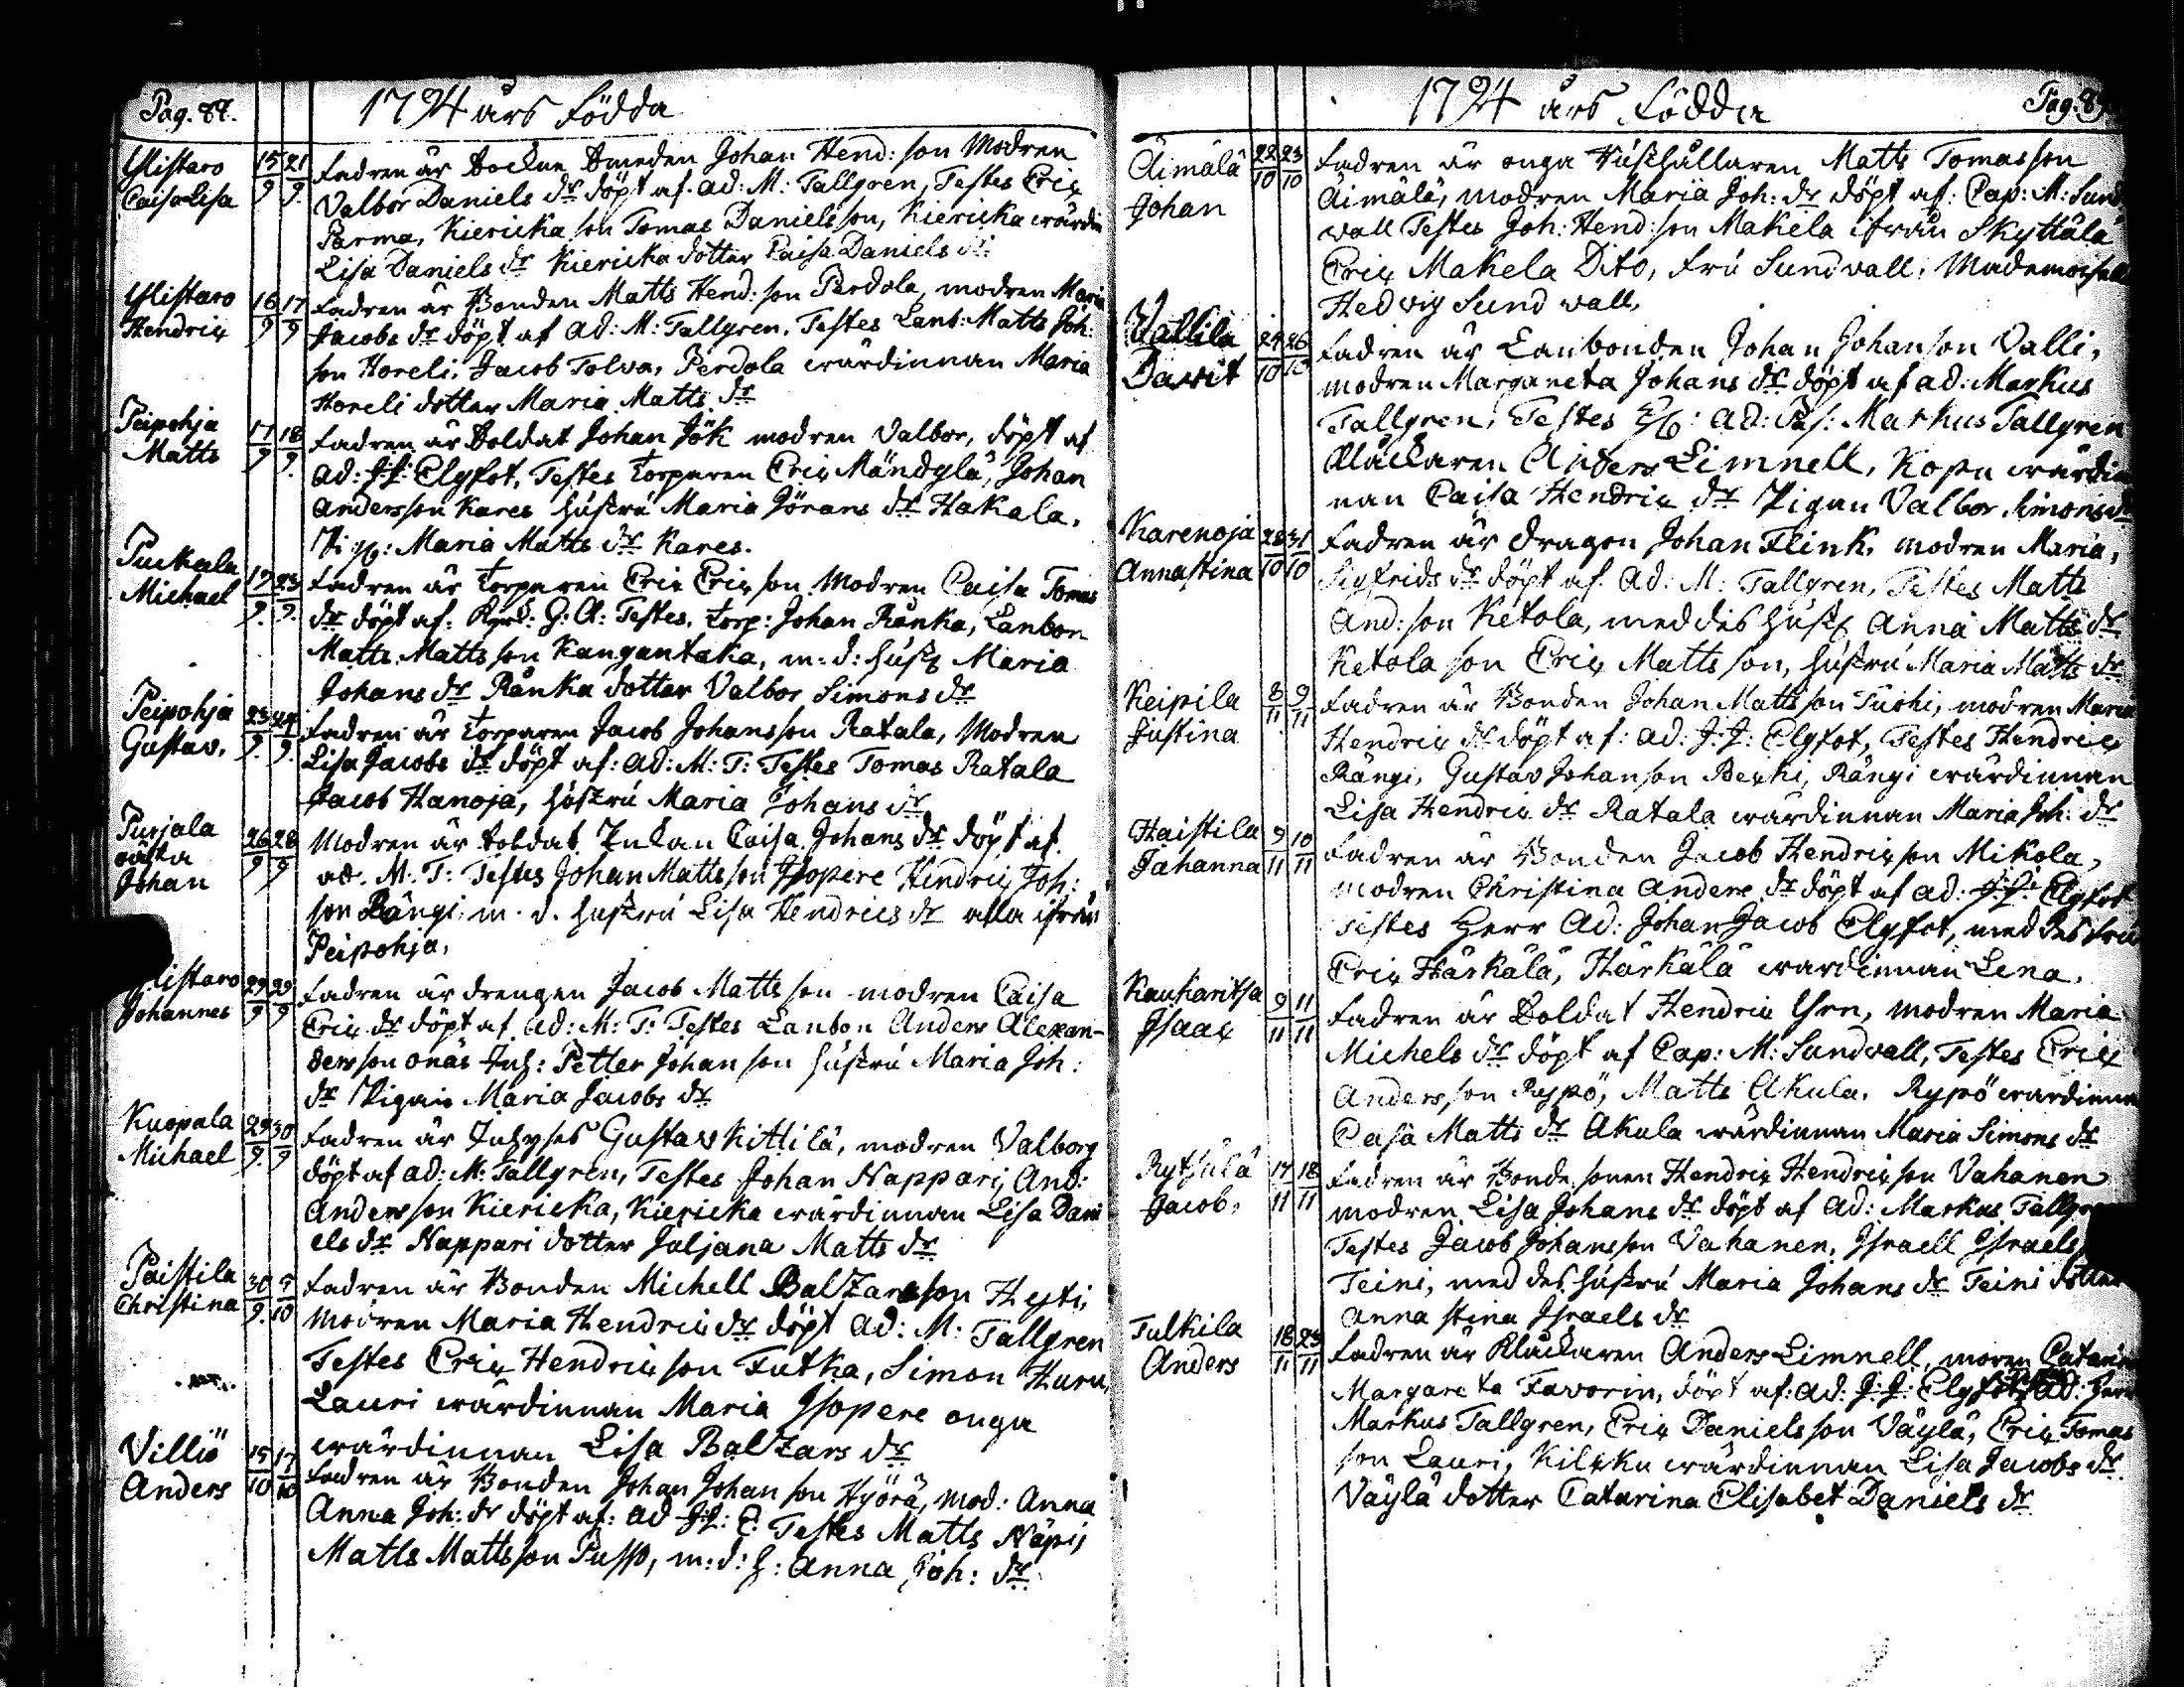 Pag. 88.
1794 års Födda
Ylistaro 15/9 21/9 Fadren är Sockne Smeden Johan Hend: son Modren
Caisa Lisa Valbor Daniels dr döpt af. ad: M: Tallgren, Testes Eric
Parma, Kiericka son Tomas Danielsson, Kiericka wärdin
Lisa Daniels dr Kiericka dotter Caisa Daniels dr
Ylistaro 16/9 17/9 Fadren är Bonden Matts Hend: son Perdola, modren Maria
Hendric Jacobs dr döpt af ad: M: Tallgren. Testes Lanb: Matts Joh:
son Horeli, Jacob Tolva, Perdola wärdinnan Maria
Horeli dotter Maria Matts dr
Peipohja 17/9 18/9 Fadren är Soldat Johan Jök modren Valbor, döpt af
Matts ad: J: J: Elgfot, Testes torparen Eric Mändylä, Johan
Andersson Kares hustru Maria Jörans dr Hakala,
Pig: Maria Matts dr Kares.
Puckala 19/9 23/9 Fadren är torparen Eric Ericson Modren Caisa Tomas
Michael dr döpt af: G: A: Testes, torp: Johan Ränka, Lanbon
Matts Mattsson Kangantaka, m: d: hust Maria
Johans dr Ränka dotter Valbor Simons dr
Peipohja 23/9 24/9 Fadren är torparen Jacob Johansson Ratala, Modren
Gustav, Lisa Jacobs dr döpt af: ad: M: T: Testes Tomas Ratala
Jacob Hanoja, hustru Maria Johans dr
Purjala 26/9 28/9 Modren är Soldat Enkan Caisa Johans dr döpt af
oäkta ad. M: T: Testes Johan Mattsson Isopere Hendric Joh:
Johan son Rängi, m. d. hustru Lisa Hendrics dr alla ifrån
Peipohja,
listaro 29/9 29/9 Fadren är drengen Jacob Mattsson modren Caisa
Johannes Eric dr döpt af ad: M: T: Testes Lanbon Anders Alexan-
dersson onäs Inh: Petter Johanson hustru Maria Joh:
dr Pigan Maria Jacobs dr
Kuopala 29/9 30/9 Fadren är Inhyses Gustav Kittilä, modren Valborg
Michael döpt af ad: M: Tallgren, Testes Johan Nappari, And:
Andersson Kiericka, Kiericka wärdinnan Lisa Dani
els dr Nappari dotter Juljana Matts dr
Paistila 30/9 3/10 Fadren är Bonden Michell Baltzarsson Heyti,
Christina Modren Maria Hendric dr döpt ad: M: Tallgren
Testes Eric Hendricson Futka, Simon Huru,
Lauri wärdinnan Maria Isopere onga
wärdinnan Lisa Baltzars dr
Villiö 15/10 17/10 Fadren är Bonden Johan Johanson Hyörä, mod: Anna
Anders Anna Joh: dr döpt af: ad J: J: E: Testes Matts Näpi,
Matts Mattsson Pusso, m: d: h: Anna Joh: dr
1794 års Födda
Pag. 8
Äimälä 22/10 23/10 Fadren är onga Hushållaren Matts Tomasson
Johan Äimälä, modren Maria Joh: dr döpt af: Cap: M: Sund
wall Testes Joh: Hend: son Makela ifrån Skyttälä
Eric Makela Dito, Fru Sundvall, Mademoisell
Hedvig Sund vall,
Vallila 24/10 26/10 Fadren är Lanbonden Johan Johanson Valli,
Davit modren Margareta Johans dr döpt af ad: Markus
Tallgren, Testes ad: Markus Tallgren
Klåckaren Anders Limnell, Kopu wärdin
nan Caisa Hendric dr Pigan Valbor Simons dr
Karenoja 28/10 31/10 Fadren är dragon Johan Flink, modren Maria,
Annastina Sigfrids dr döpt af ad: M: Tallgren, Testes Matts
And: son Ketola, med des hust Anna Matts dr
Ketola son Eric Mattsson, hustru Maria Matts dr
Keipila 8/11 9/11 Fadren är Bonden Johan Mattsson Tuohi, modren Maria
Justina Hendric dr döpt af: ad: J: J: Elgfot, Testes Hendric
Rängi, Gustav Johanson Berki, Rängi wärdinnan
Lisa Hendric dr Ratala wärdinnan Maria Joh: dr
Haistila 9/11 10/11 Fadren är Bonden Jacob Hendricson Mikola,
Jahanna modren Christina Anders dr döpt af ad: J: J: Elgfot
Testes Herr Ad: Johan Jacob Elgfot, med des Fru
Eric Härkälä, Härkälä wärdinnan Lena,
Kaukaritsa 9/11 11/11 Fadren är Soldat Hendric Yrn, modren Maria
Isaac Michels dr döpt af Cap: M: Sundvall, Testes Eric
Andersson Rypö, Matts Akula. Rypö wärdinna
Casa Matts dr Akula wärdinnan Maria Simons dr
Rytsälä 17/11 18/11 Fadren är Bonde sonen Hendric Hendricson Vahanen
Jacob, modren Lisa Johans dr döpt af ad: Markus Tallgr
Testes Jacob Johansson Vahanen, Israell Israels
Teini, med des hustru Maria Johans dr Teini dotter
Anna stina Israels dr
Tulkila 18/11 23/11 Fadren är Klåckaren Anders Limnell, moren Catarin
Anders Margareta Favorin, döpt af: ad: J: J: Elgfot, ad: Herr
Markus Tallgren, Eric Danielsson Väylä, Eric Tomas
son Lauri, Kilkku wärdinnan Lisa Jacobs dr
Väylä dotter Catarina Elisabet Daniels dr